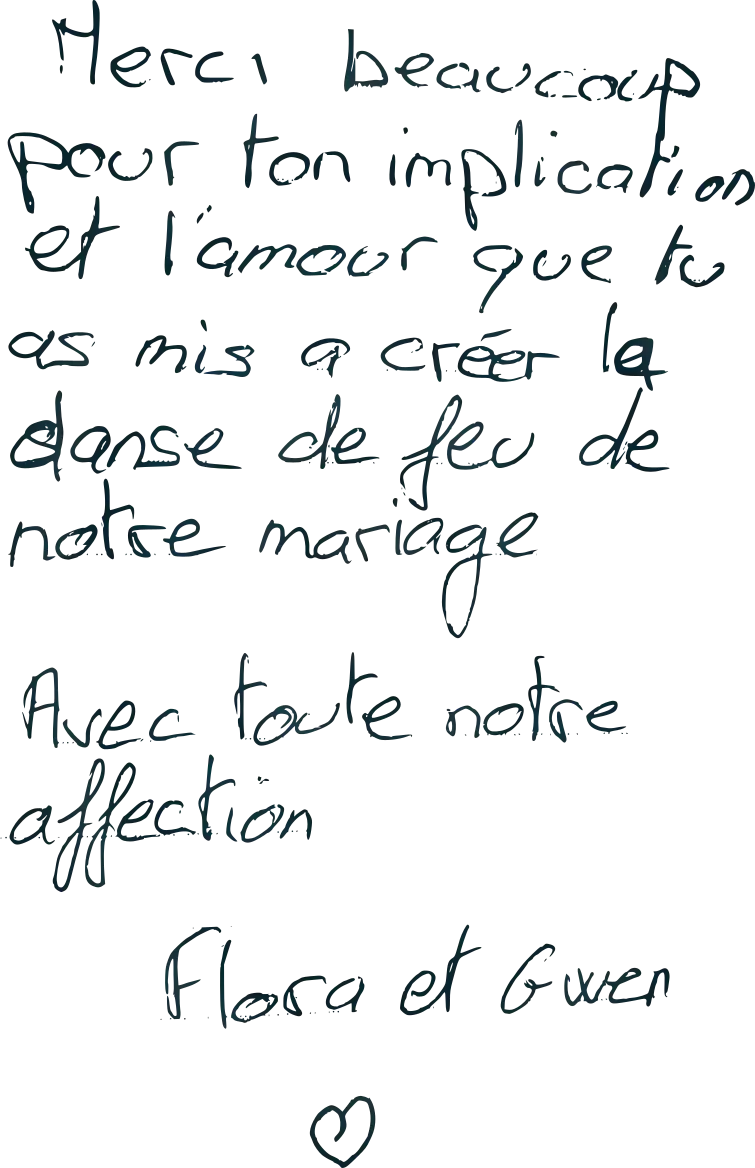 Merci beaucoup
pour ton implication
et l'amour que tu
as mis a créer la
danse de feu de
notre mariage
Avec toute notre
affection
Flora et Gwen